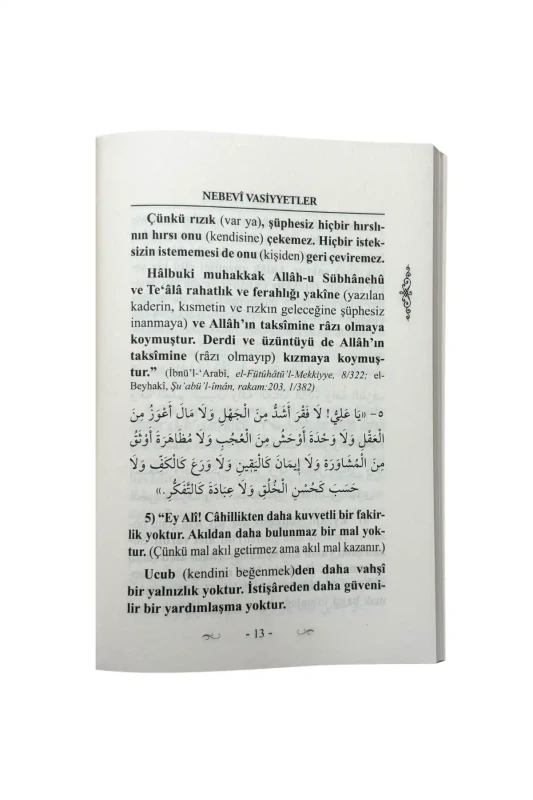 NEBEVÎ VASİYYETLER
Çünkü rızık (var ya), şüphesiz hiçbir hırslı-
nın hırsı onu (kendisine) çekemez. Hiçbir istek-
sizin istememesi de onu (kişiden) geri çeviremez.
Hâlbuki muhakkak Allâh-u Sübhânehû
ve Te‘âlâ rahatlık ve ferahlığı yakîne (yazılan
kaderin, kısmetin ve rızkın geleceğine şüphesiz
inanmaya) ve Allâh’ın taksîmine râzı olmaya
koymuştur. Derdi ve üzüntüyü de Allâh’ın
taksîmine (râzı olmayıp) kızmaya koymuş-
tur.” (İbnü’l-‘Arabî, el-Fütûhâtü’l-Mekkiyye, 8/322; el-
Beyhakî, Şu‘abü’l-îmân, rakam:203, 1/382)
٥- «يَا عَلِيُّ! لَا فَقْرَ أَشَدُّ مِنَ الْجَهْلِ وَلَا مَالَ أَعْوَزُ مِنَ
الْعَقْلِ وَلَا وَحْدَةَ أَوْحَشُ مِنَ الْعُجْبِ وَلَا مُظَاهَرَةَ أَوْثَقُ
مِنَ الْمُشَاوَرَةِ وَلَا إِيمَانَ كَالْيَقِينِ وَلَا وَرَعَ كَالْكَفِّ وَلَا
حَسَبَ كَحُسْنِ الْخُلُقِ وَلَا عِبَادَةَ كَالتَّفَكُّرِ.»
5) “Ey Alî! Câhillikten daha kuvvetli bir fakir-
lik yoktur. Akıldan daha bulunmaz bir mal yok-
tur. (Çünkü mal akıl getirmez ama akıl mal kazanır.)
Ucub (kendini beğenmek)den daha vahşî
bir yalnızlık yoktur. İstişâreden daha güveni-
lir bir yardımlaşma yoktur.
- 13 -